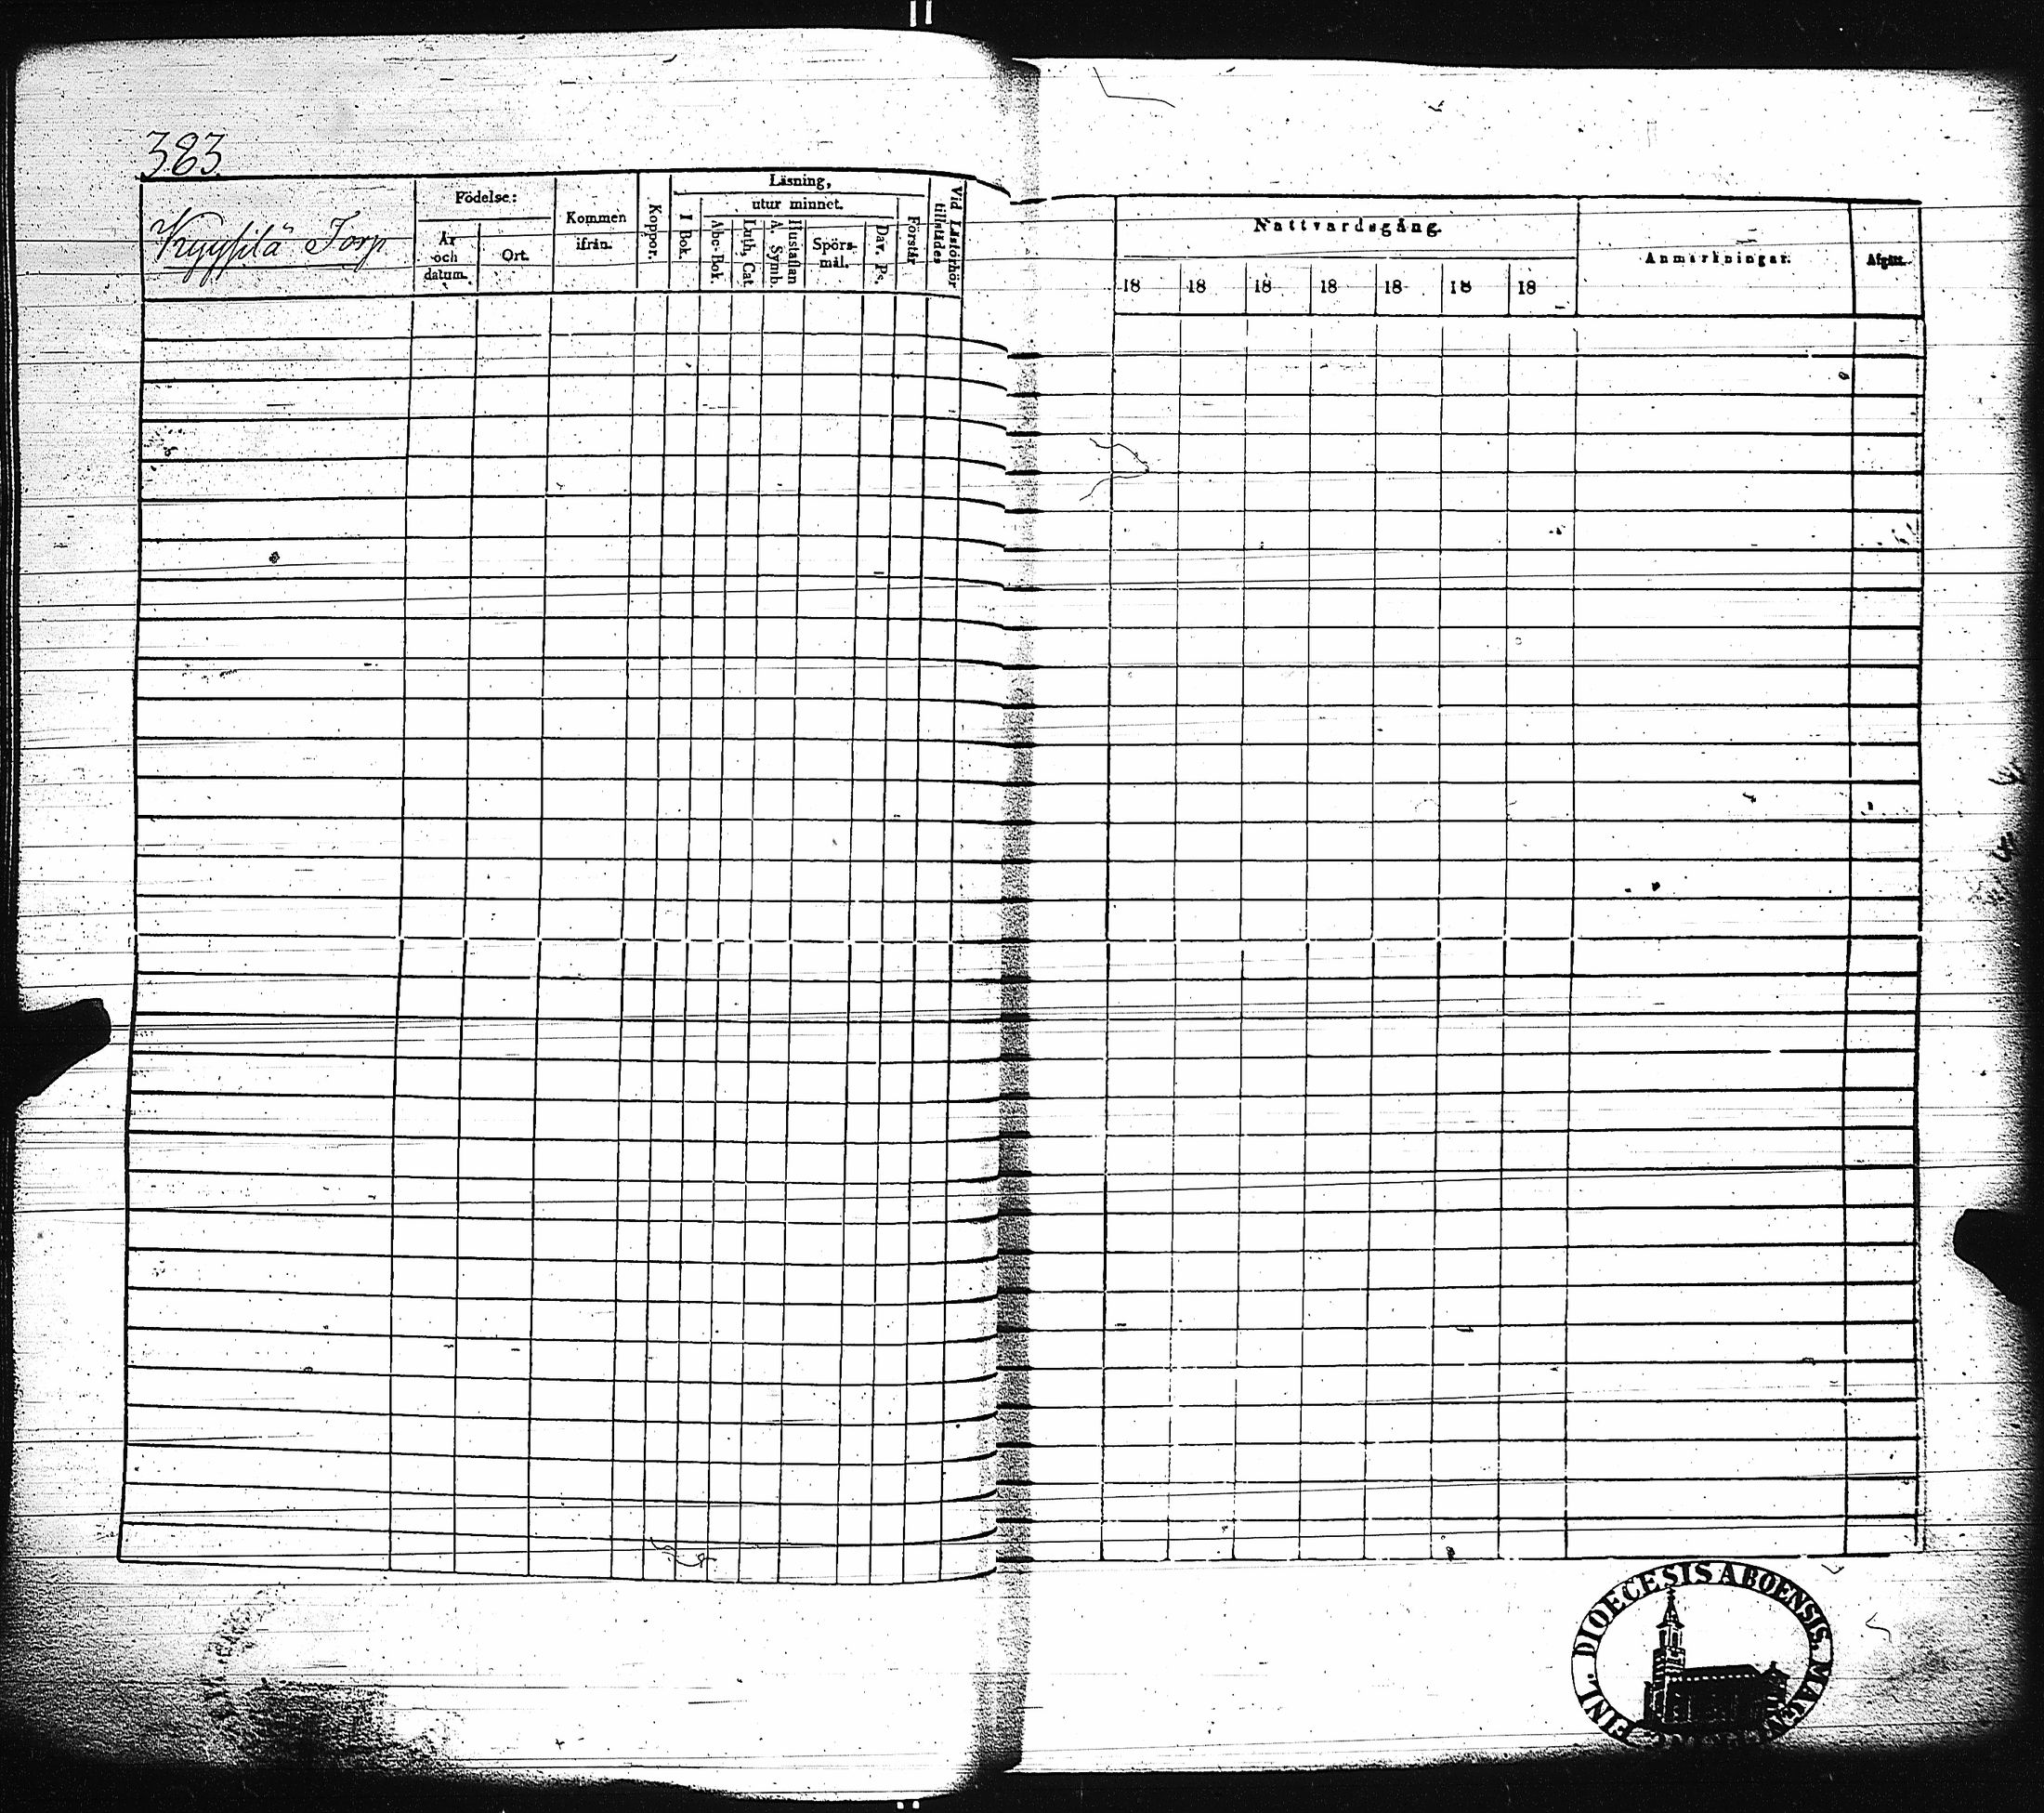 383.
Kyysilä Torp
Födelse:
År och datum.
Ort.
Kommen ifrån.
Koppor.
Läsning,
I Bok.
utur minnet.
Abc-Bok.
Luth. Cat.
Hustaflan A. Symb.
Spörs-mål.
Dav. Ps.
Förstår
Vid Läsförhör tillstädes
Nattvardsgång.
18 18 18 18 18 18 18
Anmärkningar.
Afgått.
FINL. DIOECESIS ABOENSIS.